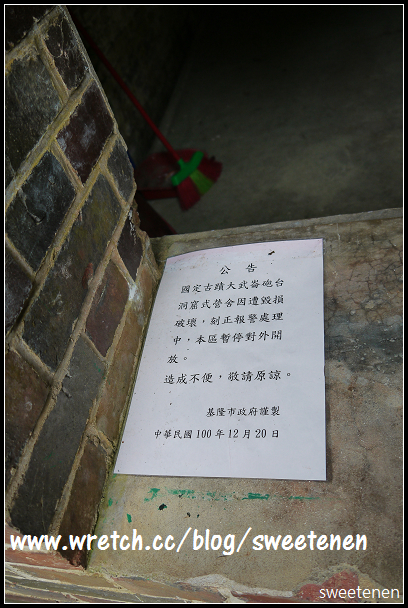 公告
國定古蹟大武崙砲台
洞窟式營舍因遭毀損
破壞，刻正報警處理
中，本區暫停對外開
放。
造成不便，敬請原諒。
基隆市政府謹製
中華民國100年12月20日
www.wretch.cc/blog/sweetenen
sweetenen